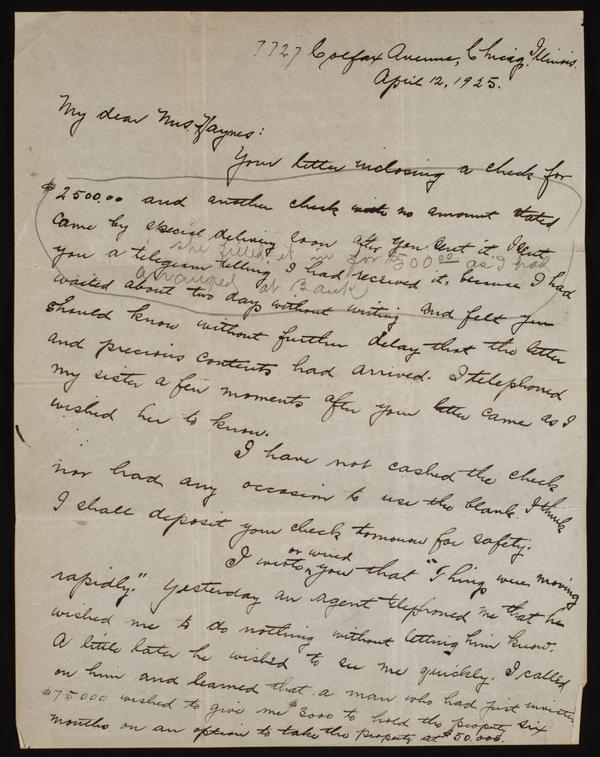 7727 Colfax Avenue, Chicag, Illinois.
April 12, 1925.
My dear Mrs. Haynes:
Your letter inclosing a check for
$2500.00 and another check with no amount stated
came by special delivery soon after you sent it. I sent
she filled it in for $500.00 as I had
you a telegram telling I had received it, because I had
arranged at Bank
waited about two days without writing and felt you
should know without further delay that the letter
and precious contents had arrived. I telephoned
my sister a few moments after your letter came as I
wished her to know.
I have not cashed the check
nor had any occasion to use the blank. I think
I shall deposit your check tomorrow for safety.
or wired
I wrote you that "Things were moving
rapidly." Yesterday an agent telephoned me that he
wished me to do nothing without letting him know.
A little later he wished to see me quickly. I called
on him and learned that a man who had just invested
$75000 wished to give me $3000 to hold the property six
months on an option to take the property at $50.000.